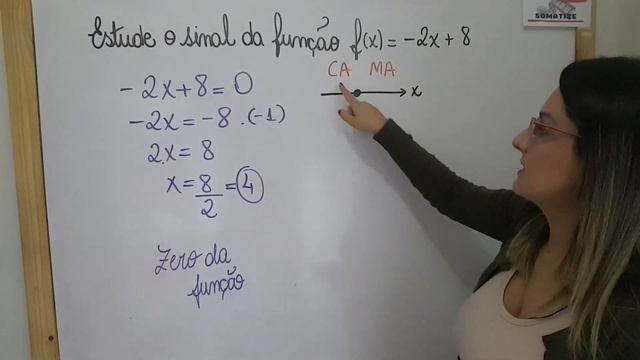 SOMATIZE
Estude o sinal da função f(x) = -2x + 8
CA MA
x
-2x+8=0
-2x = -8 .(-1)
2x = 8
x = 8/2 = 4
Zero da
função